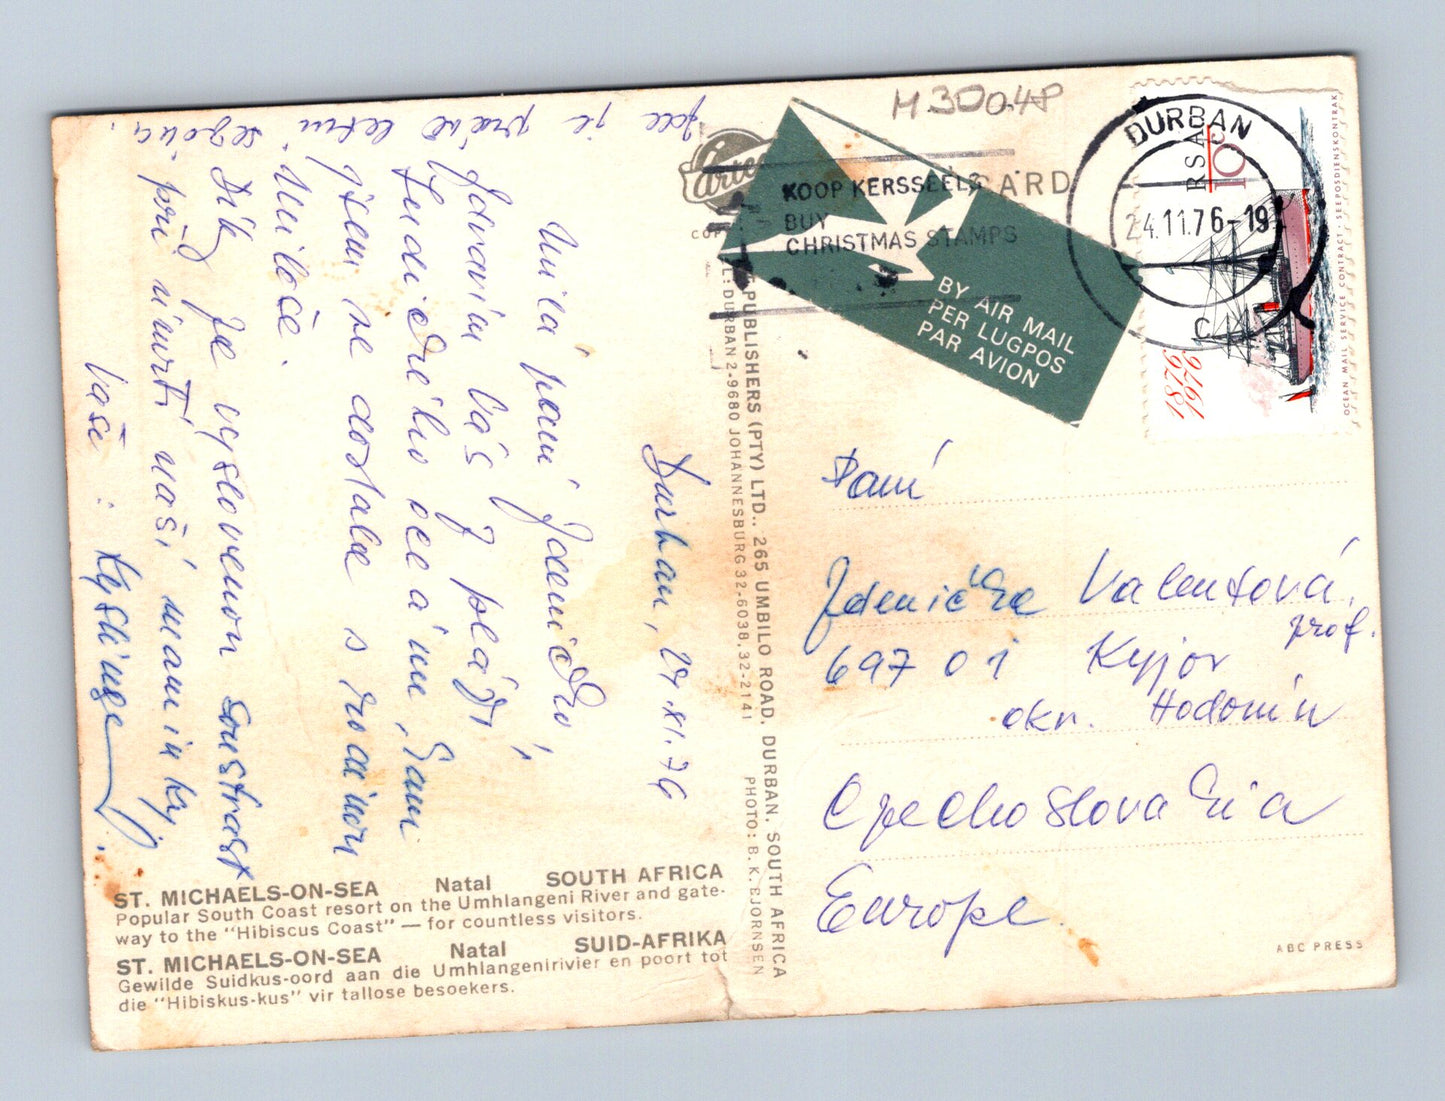 M 30048
Artco
CARD
KOOP KERSSEËLS
BUY
CHRISTMAS STAMPS
BY AIR MAIL
PER LUGPOS
PAR AVION
DURBAN
24.11.76-19
C
RSA
10
1876
1976
OCEAN MAIL SERVICE CONTRACT · SEEPOSDIENSKONTRAK
Durban, 24.XI.76
Milá paní Zdeničko,
Zdravím Vás z pláží
Indického oceánu, kam
jsem se dostala s rodinou
Miloše.
Dík za vyslovenou soustrast
při úmrtí naší maminky.
Vaše:
Zde je právě letní
sezóna.
Paní
Zdenička Valentová,
prof.
697 01 Kyjov
okr. Hodonín
Czechoslovakia
Europe
PUBLISHERS (PTY) LTD., 265 UMBILO ROAD, DURBAN, SOUTH AFRICA
L: DURBAN 2-9680 JOHANNESBURG 32-6038, 32-2141
PHOTO: B. K. BJORNSEN
ST. MICHAELS-ON-SEA Natal SOUTH AFRICA
Popular South Coast resort on the Umhlangeni River and gate-
way to the "Hibiscus Coast" — for countless visitors.
ST. MICHAELS-ON-SEA Natal SUID-AFRIKA
Gewilde Suidkus-oord aan die Umhlangenirivier en poort tot
die "Hibiskus-kus" vir tallose besoekers.
ABC PRESS